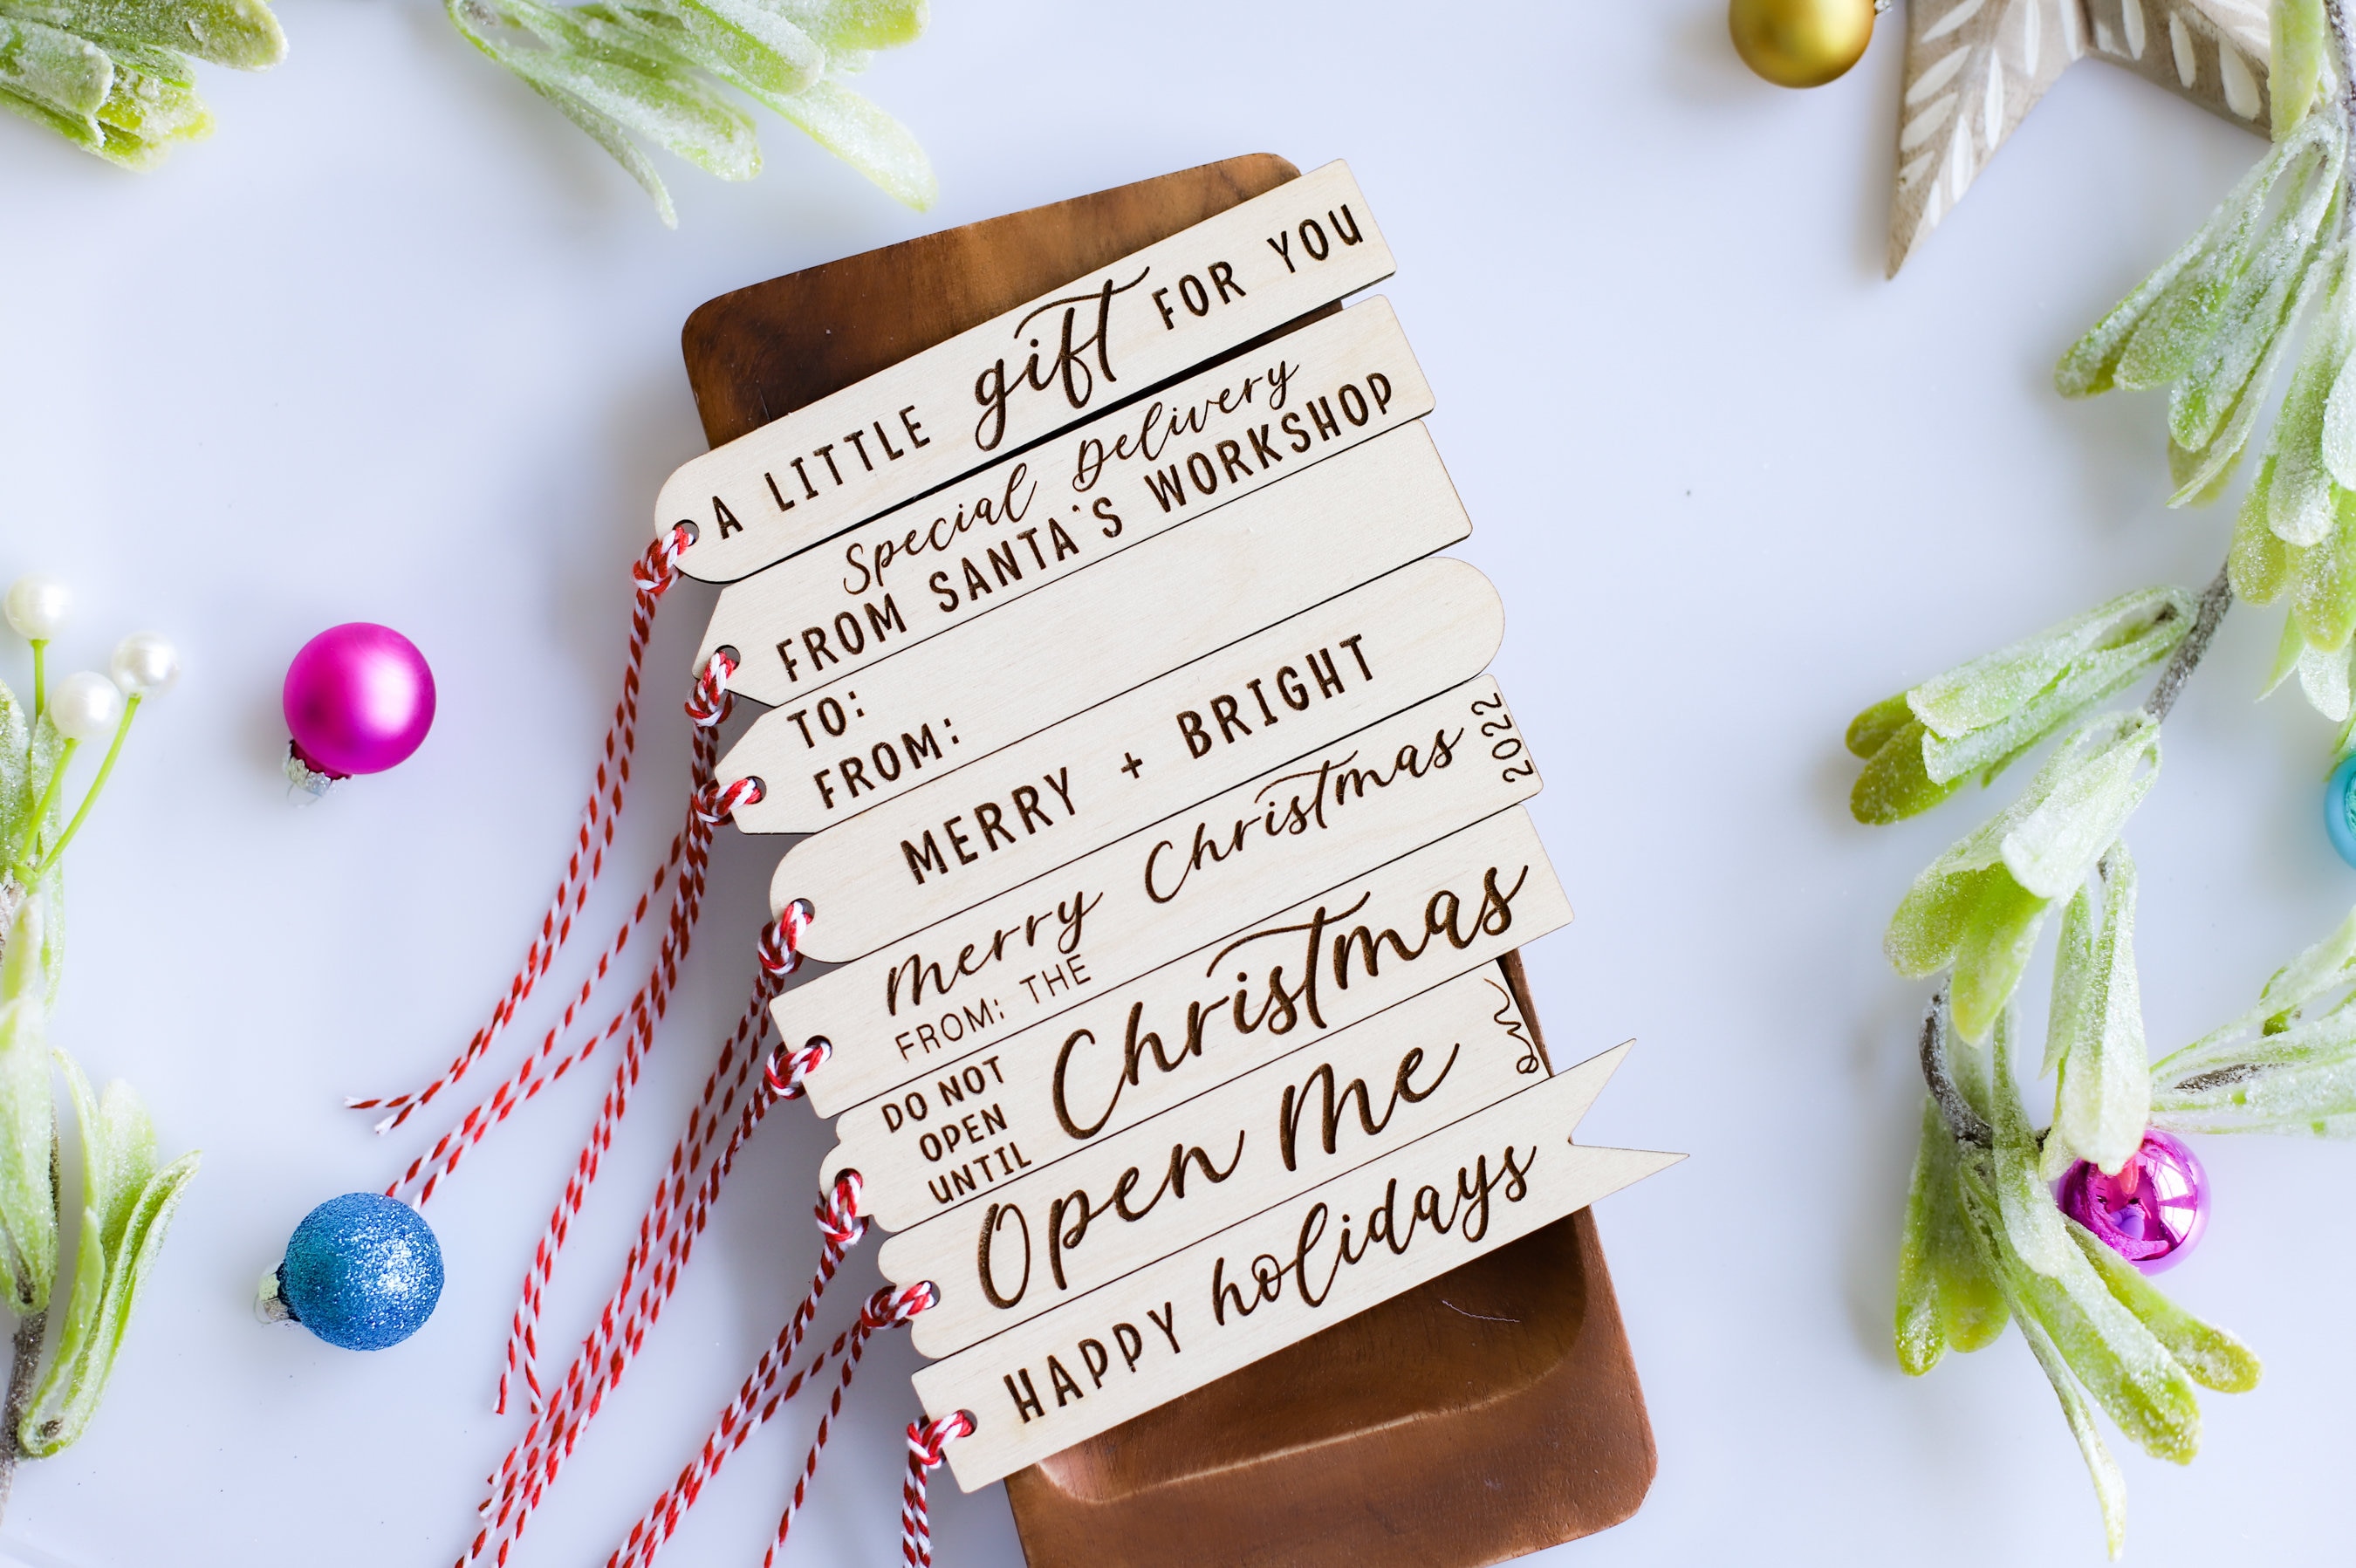 A LITTLE gift FOR YOU
Special Delivery
FROM SANTA'S WORKSHOP
TO:
FROM:
MERRY + BRIGHT
Merry Christmas 2022
FROM: THE
DO NOT
OPEN
UNTIL
Christmas
Open Me
HAPPY holidays